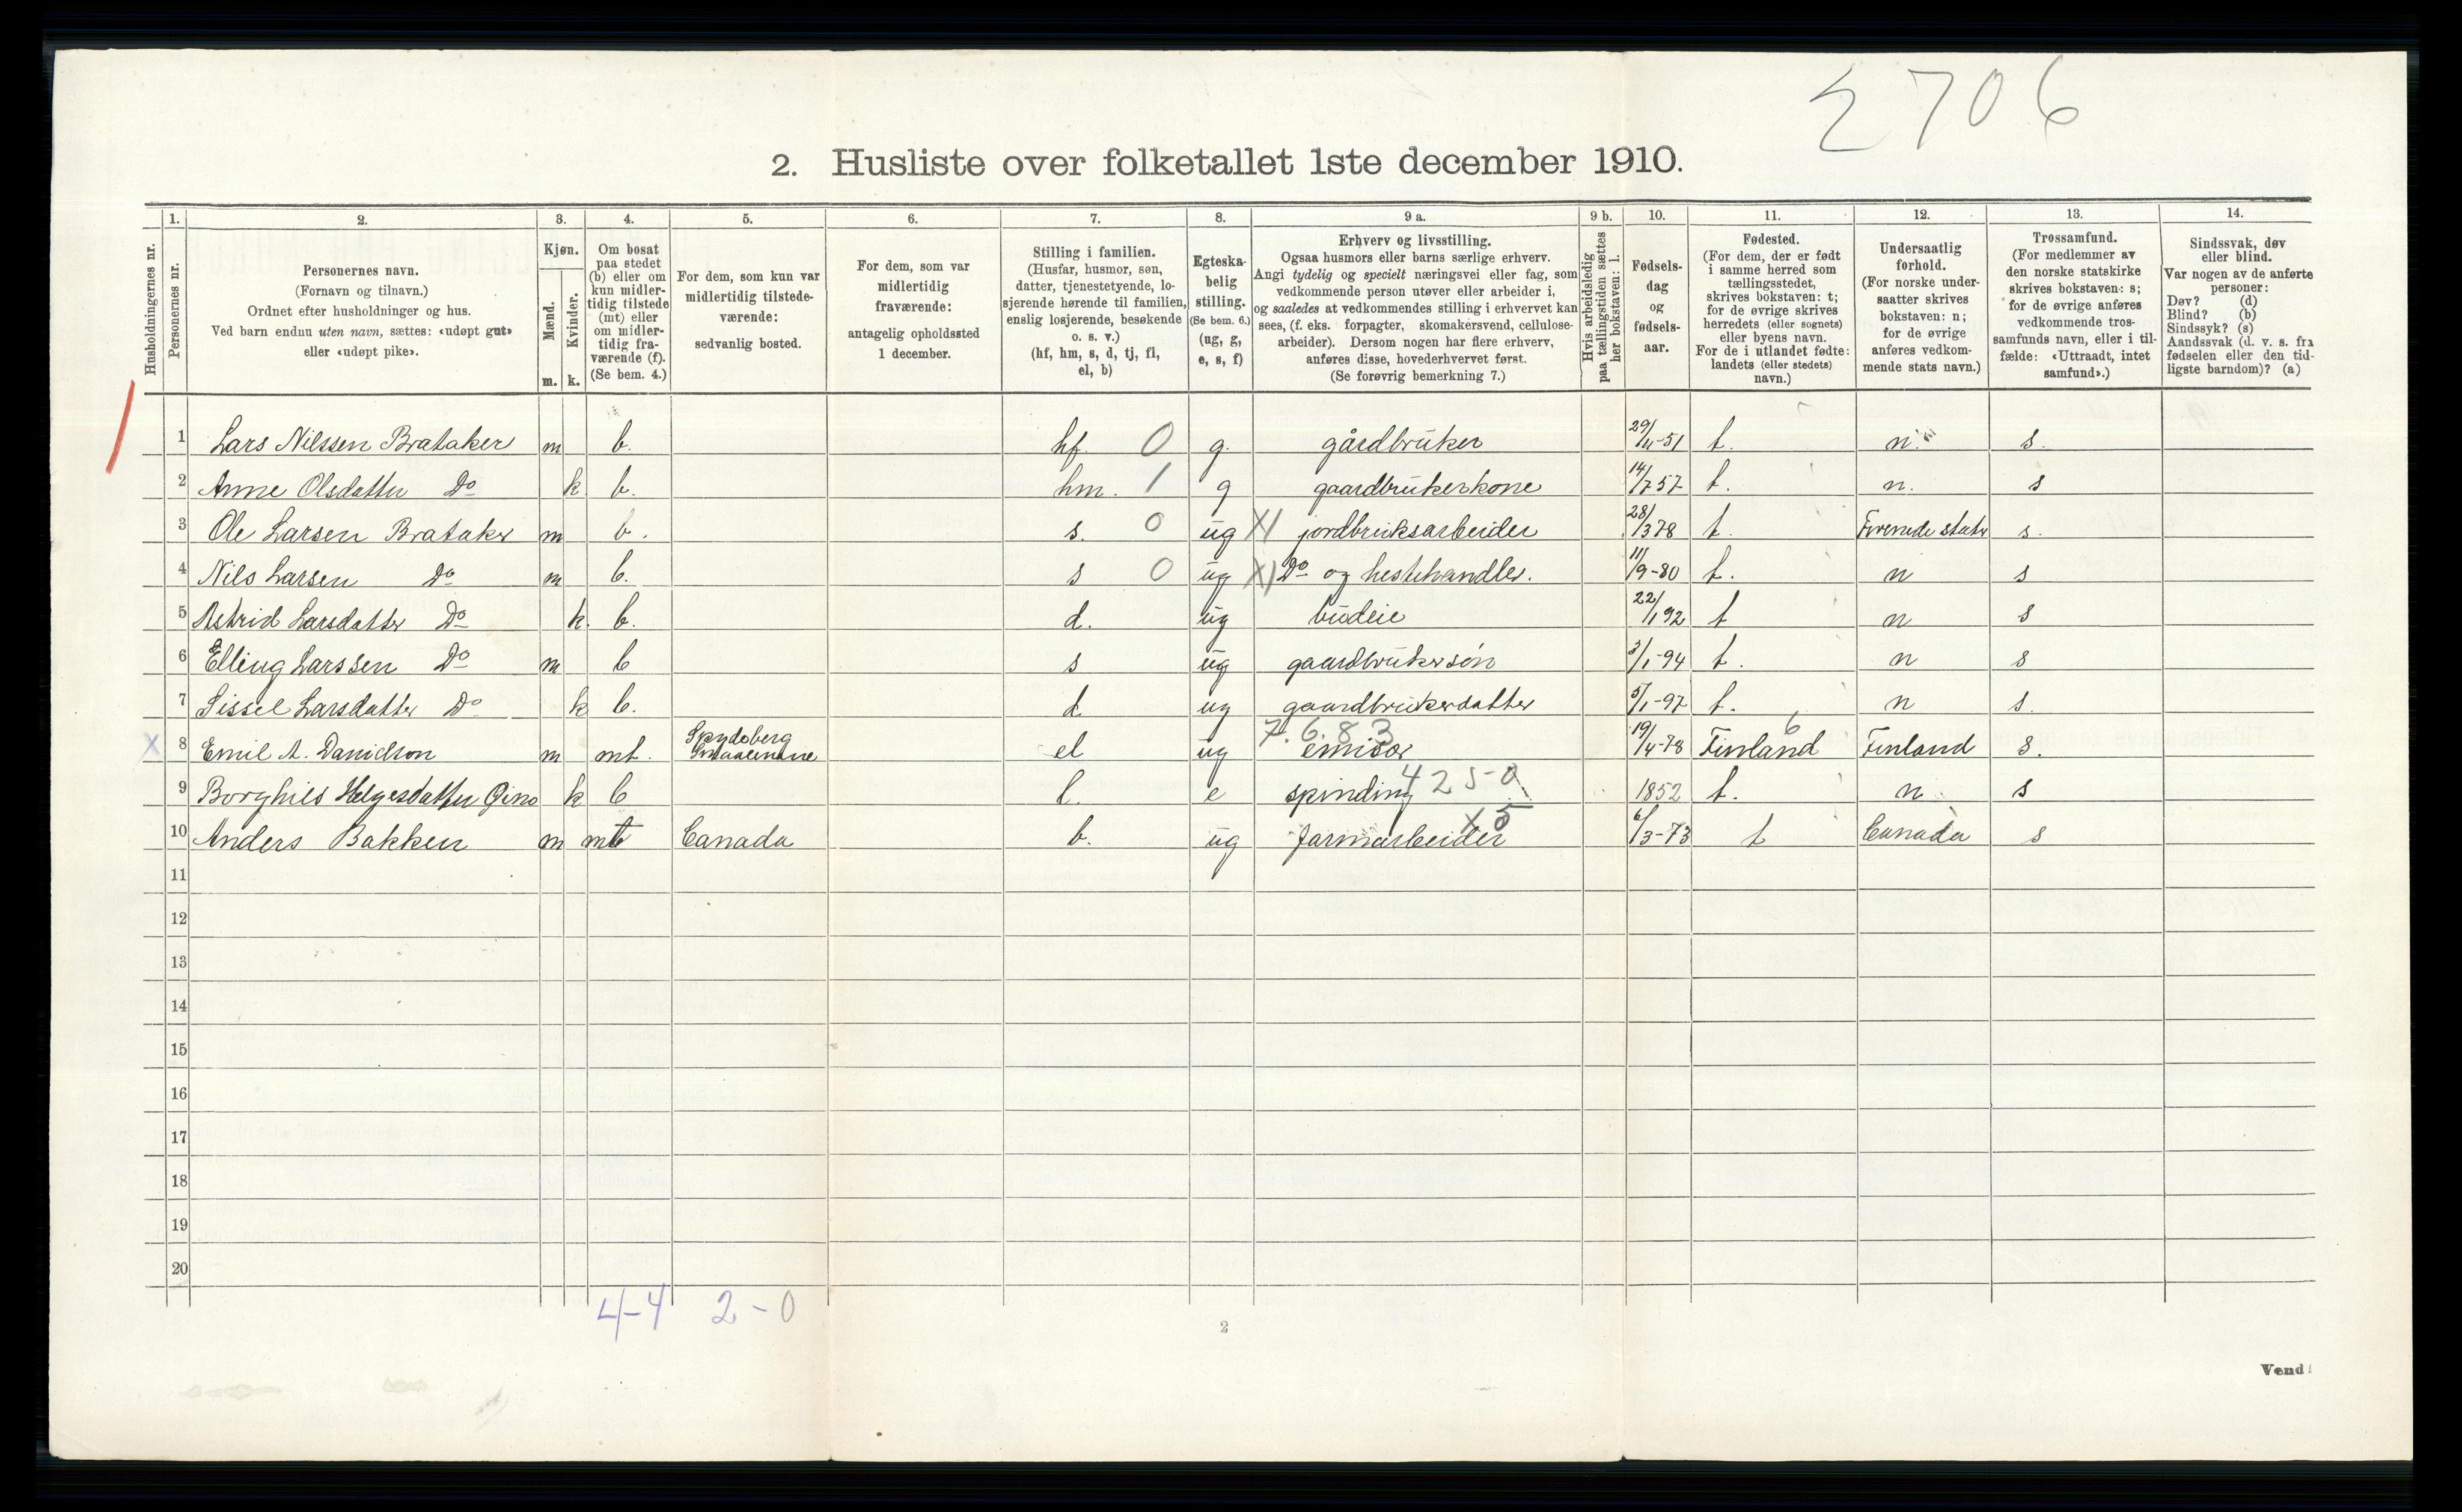 2706
2. Husliste over folketallet 1ste december 1910.
Husholdningernes nr.
1.
Personernes nr.
2.
Personernes navn.
(Fornavn og tilnavn.)
Ordnet efter husholdninger og hus.
Ved barn endnu uten navn, sættes: «udøpt gut»
eller «udøpt pike».
3.
Kjøn.
Mænd.
Kvinder.
m. k.
4.
Om bosat
paa stedet
(b) eller om
kun midler-
tidig tilstede
(mt) eller
om midler-
tidig fra-
værende (f).
(Se bem. 4.)
5.
For dem, som kun var
midlertidig tilstede-
værende:
sedvanlig bosted.
6.
For dem, som var
midlertidig
fraværende:
antagelig opholdssted
1 december.
7.
Stilling i familien.
(Husfar, husmor, søn,
datter, tjenestetyende, lo-
sjerende hørende til familien,
enslig losjerende, besøkende
o. s. v.)
(hf, hm, s, d, tj, fl,
el, b)
8.
Egteska-
belig
stilling.
(Se bem. 6.)
(ug, g,
e, s, f)
9 a.
Erhverv og livsstilling.
Ogsaa husmors eller barns særlige erhverv.
Angi tydelig og specielt næringsvei eller fag, som
vedkommende person utøver eller arbeider i,
og saaledes at vedkommendes stilling i erhvervet kan
sees, (f. eks. forpagter, skomakersvend, cellulose-
arbeider). Dersom nogen har flere erhverv,
anføres disse, hovederhvervet først.
(Se forøvrig bemerkning 7.)
9 b.
Hvis arbeidsledig
paa tællingstiden sættes
her bokstaven: l.
10.
Fødsels-
dag
og
fødsels-
aar.
11.
Fødested.
(For dem, der er født
i samme herred som
tællingsstedet,
skrives bokstaven: t;
for de øvrige skrives
herredets (eller sognets)
eller byens navn.
For de i utlandet fødte:
landets (eller stedets)
navn.)
12.
Undersaatlig
forhold.
(For norske under-
saatter skrives
bokstaven: n;
for de øvrige
anføres vedkom-
mende stats navn.)
13.
Trossamfund.
(For medlemmer av
den norske statskirke
skrives bokstaven: s;
for de øvrige anføres
vedkommende tros-
samfunds navn, eller i til-
fælde: «Uttraadt, intet
samfund».)
14.
Sindssvak, døv
eller blind.
Var nogen av de anførte
personer:
Døv? (d)
Blind? (b)
Sindssyk? (s)
Aandssvak (d. v. s. fra
fødselen eller den tid-
ligste barndom)? (a)
1 Lars Nilssen Brataker m b. hf. 0 g. gårdbruker 29/4-51 t. n. s.
2 Anne Olsdatter Do k b. hm. 1 g gaardbrukerkone 14/7 57 t. n. s
3 Ole Larsen Brataker m b. s. 0 ug X1 jordbruksarbeider 28/3 78 t. Forenede stater s.
4 Nils Larsen Do m b. s 0 ug X1 Do og hestehandler. 11/9-80 t. n s
5 Astrid Larsdatter Do k. b. d. ug budeie 22/1 92 t n s
6 Elling Larssen Do m b s ug gaardbrukersøn 3/1-94 t. n s
7 Sissel Larsdatter Do k b. d ug gaardbrukerdatter 5/1-97 t. n s.
X 8 Emil A. Danielson m mt. Spydeberg Smaalenene el ug 7.6.83 emisør 19/4-78 Finland 6 Finland s.
9 Borghild Helgesdatter k b f. e spinding 4250 1852 t. n s
10 Anders Bakken m mt Canada b. ug farmarbeider X5 6/3-73 t Canada s
11
12
13
14
15
16
17
18
19
20
4-4 2-0
2
Vend!